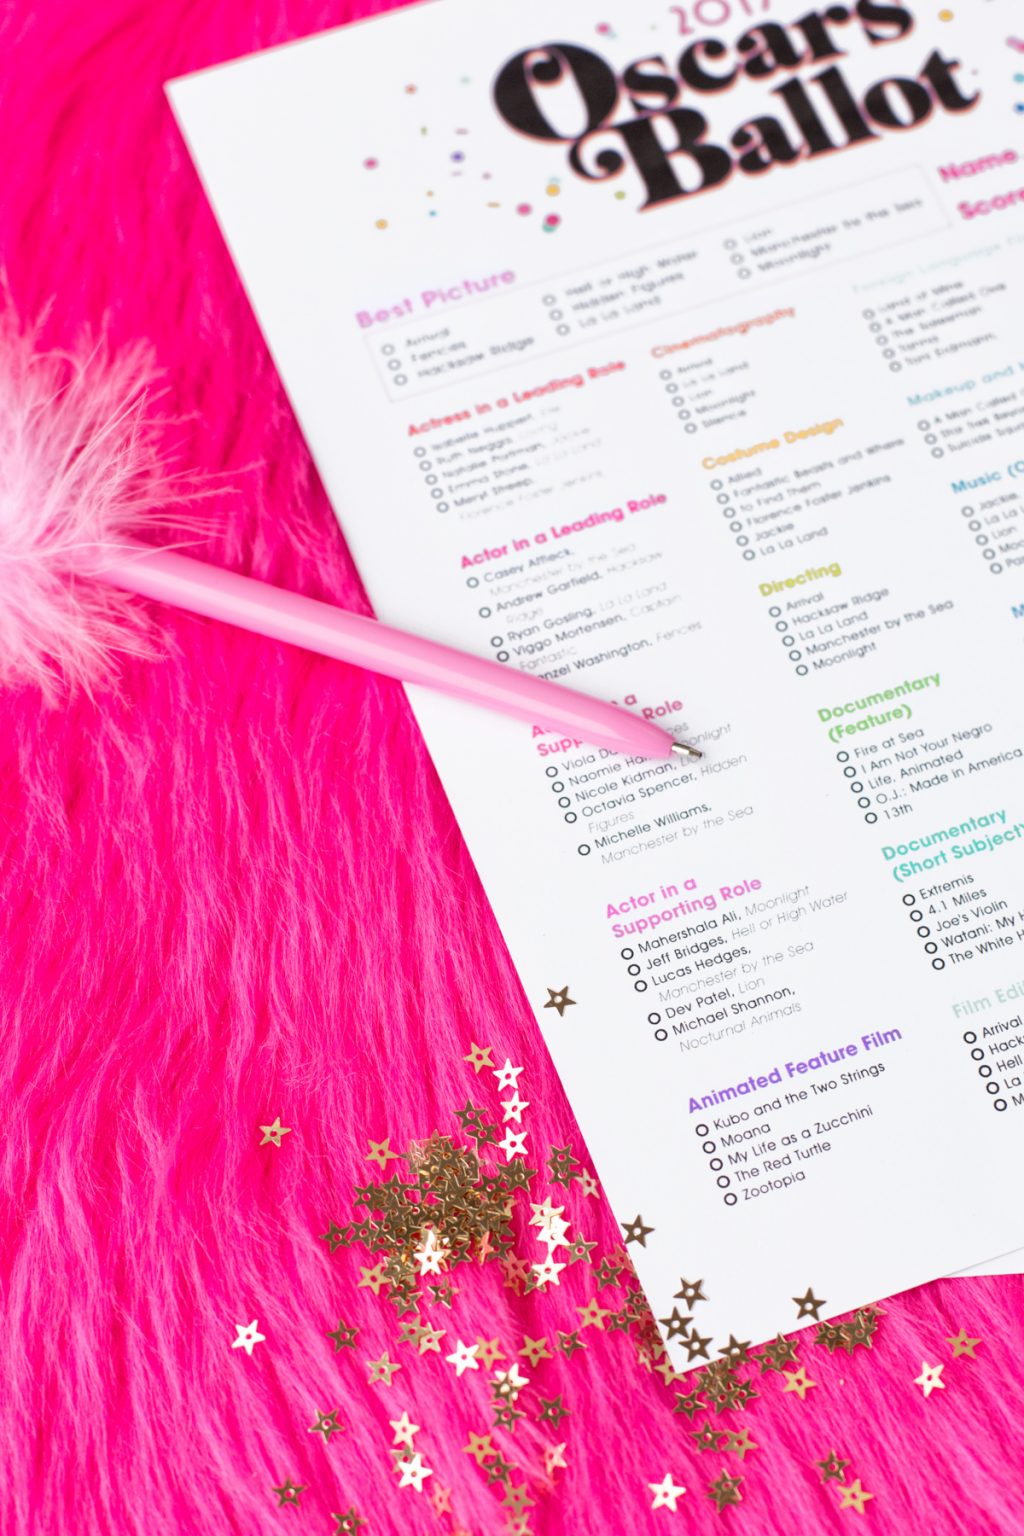 2017
Oscars
Ballot
Name
Score
Best Picture
Arrival
Fences
Hacksaw Ridge
Hell or High Water
Hidden Figures
La La Land
Lion
Manchester by the Sea
Moonlight
Actress in a Leading Role
Isabelle Huppert, Elle
Ruth Negga, Loving
Natalie Portman, Jackie
Emma Stone, La La Land
Meryl Streep,
Florence Foster Jenkins
Actor in a Leading Role
Casey Affleck,
Manchester by the Sea
Andrew Garfield, Hacksaw
Ridge
Ryan Gosling, La La Land
Viggo Mortensen, Captain
Fantastic
enzel Washington, Fences
A
n a
Supp
Role
Viola Da
ces
Naomie Ha
oonlight
Nicole Kidman,
Octavia Spencer, Hidden
Figures
Michelle Williams,
Manchester by the Sea
Actor in a
Supporting Role
Mahershala Ali, Moonlight
Jeff Bridges, Hell or High Water
Lucas Hedges,
Manchester by the Sea
Dev Patel, Lion
Michael Shannon,
Nocturnal Animals
Animated Feature Film
Kubo and the Two Strings
Moana
My Life as a Zucchini
The Red Turtle
Zootopia
Cinematography
Arrival
La La Land
Lion
Moonlight
Silence
Costume Design
Allied
Fantastic Beasts and Where
to Find Them
Florence Foster Jenkins
Jackie
La La Land
Directing
Arrival
Hacksaw Ridge
La La Land
Manchester by the Sea
Moonlight
Documentary
(Feature)
Fire at Sea
I Am Not Your Negro
Life, Animated
O.J.: Made in America
13th
Documentary
(Short Subject)
Extremis
4.1 Miles
Joe's Violin
Watani: My H
The White H
Film Edi
Arrival
Hacks
Hell
La
M
Foreign Language Fi
Land of Mine
A Man Called Ove
The Salesman
Tanna
Toni Erdmann
Makeup and H
A Man Called
Star Trek Beyo
Suicide Squa
Music (O
Jackie,
La La L
Lion,
Moo
Pas
M